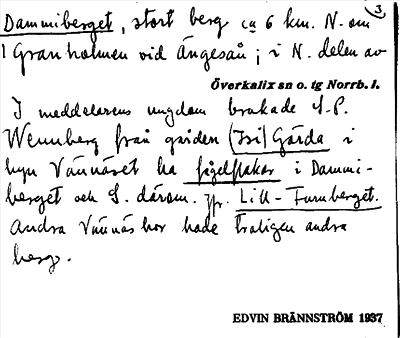 3
Dammiberget, stort berg ca 6 km. N. om
Granholmen vid Ängesån; i N. delen av
Överkalix sn o. tg Norrb. l.
I meddelarens ungdom brukade J. P.
Wennberg från gården (Isi) Gårda i
byn Vännäset ha fågelflakar i Dammi-
berget och S. därom. Jfr. Lill-Furuberget.
Andra Vännäsbor hade troligen andra
berg.
EDVIN BRÄNNSTRÖM 1937